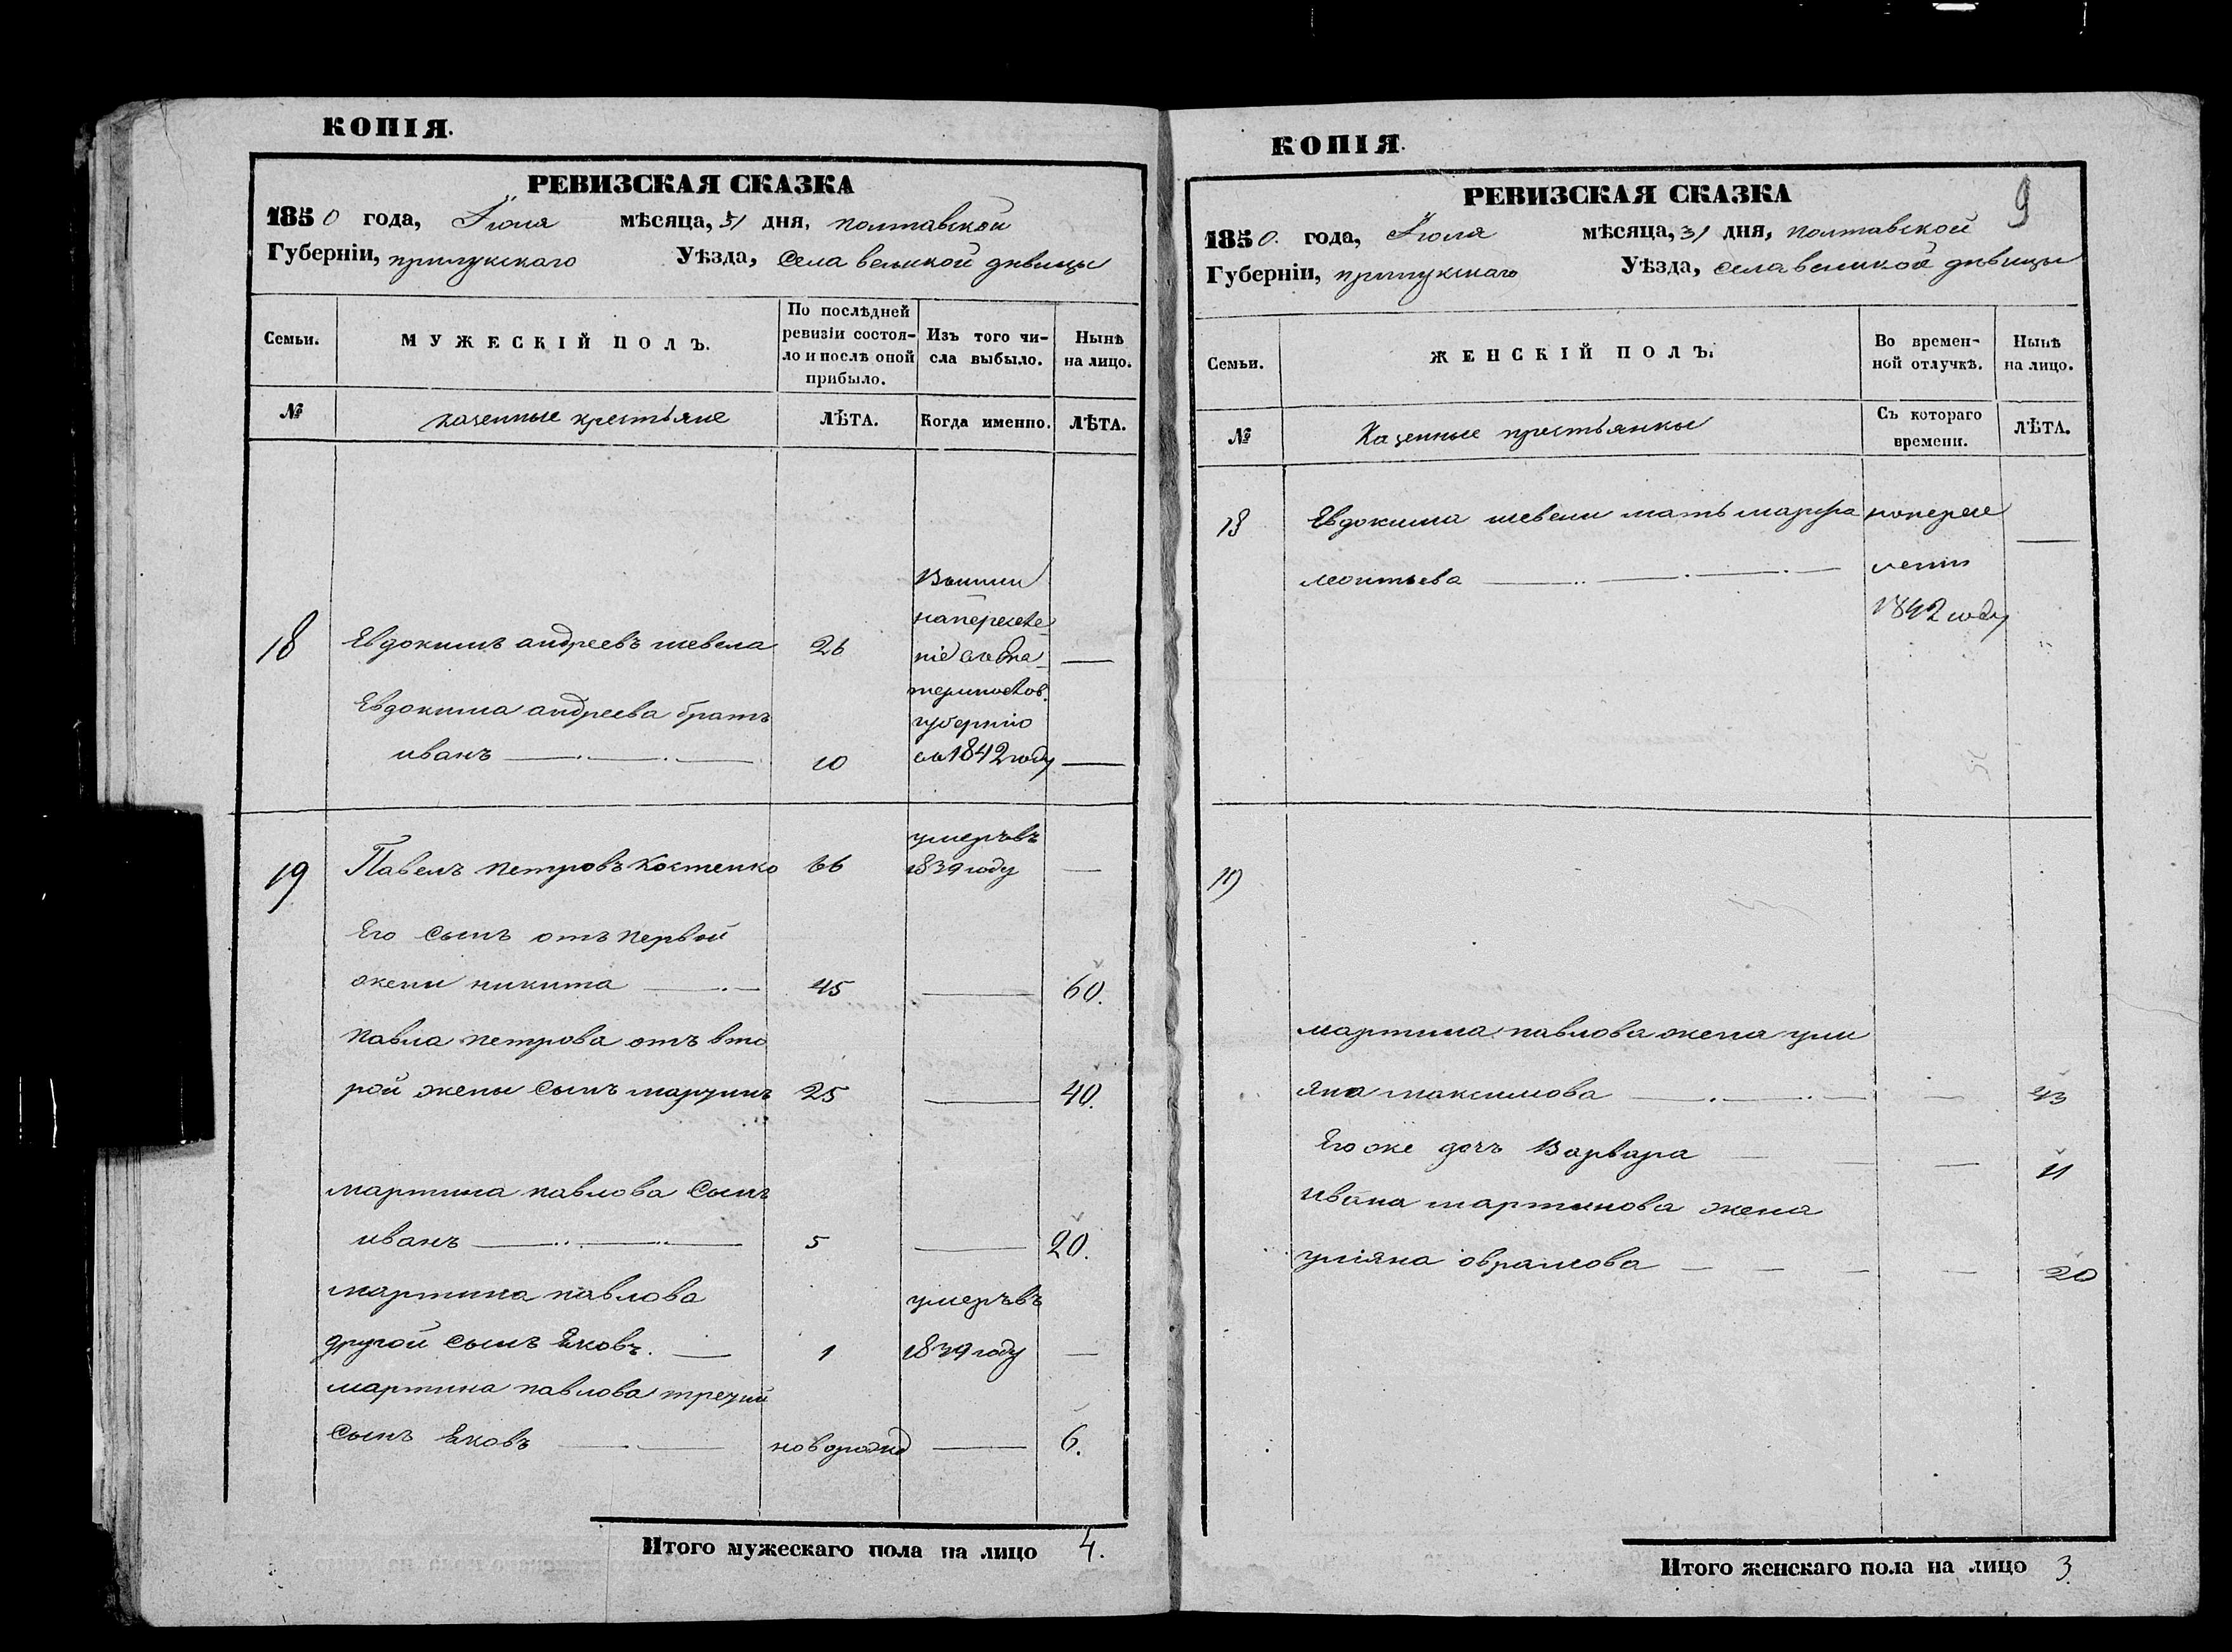 КОПІЯ.
РЕВИЗСКАЯ СКАЗКА
1850 года, Іюля мѣсяца, 31 дня, полтавской
Губерніи, прилукскаго Уѣзда, села великой дѣвицы
Семьи.
МУЖЕСКІЙ ПОЛЪ.
По послѣдней
ревизіи состоя-
ло и послѣ оной
прибыло.
Изъ того чи-
сла выбыло.
Нынѣ
на лицо.
№
казенные крестьяне
ЛѢТА.
Когда именно.
ЛѢТА.
18
Евдокимъ андреевъ шевела 26 —
Евдокима андреева братъ
иванъ 10 —
на пересе
губернію
1842 году
19
Павелъ петровъ Костенко 66
умеръ въ
1839 году —
Его сынъ отъ первой
жени никита 45 — 60.
павла петрова отъ вто
рой жены сынъ мартинъ 25 — 40.
мартина павлова сынъ
иванъ 5 — 20.
мартина павлова
умеръ въ
другой сынъ Яковъ. — 1 1839 году —
мартина павлова третий
сынъ Яковъ новорожд — 6.
Итого мужескаго пола на лицо 4.
КОПІЯ.
9
РЕВИЗСКАЯ СКАЗКА
1850. года, Іюля мѣсяца, 31 дня, полтавской
Губерніи, прилукскаго Уѣзда, села великой дѣвицы
Семьи.
ЖЕНСКІЙ ПОЛЪ.
Во времен-
ной отлучкѣ.
Нынѣ
на лицо.
№
Казенные крестьянки
Съ котораго
времени.
ЛѢТА.
18
Евдокима шевели мать марфа —
леонтьева
1842 году
19
мартина павлова жена ули
яна максимова — 43
Его же дочь Варвара — 11
ивана мартинова жена
улiяна оврамова — 20
Итого женскаго пола на лицо 3.